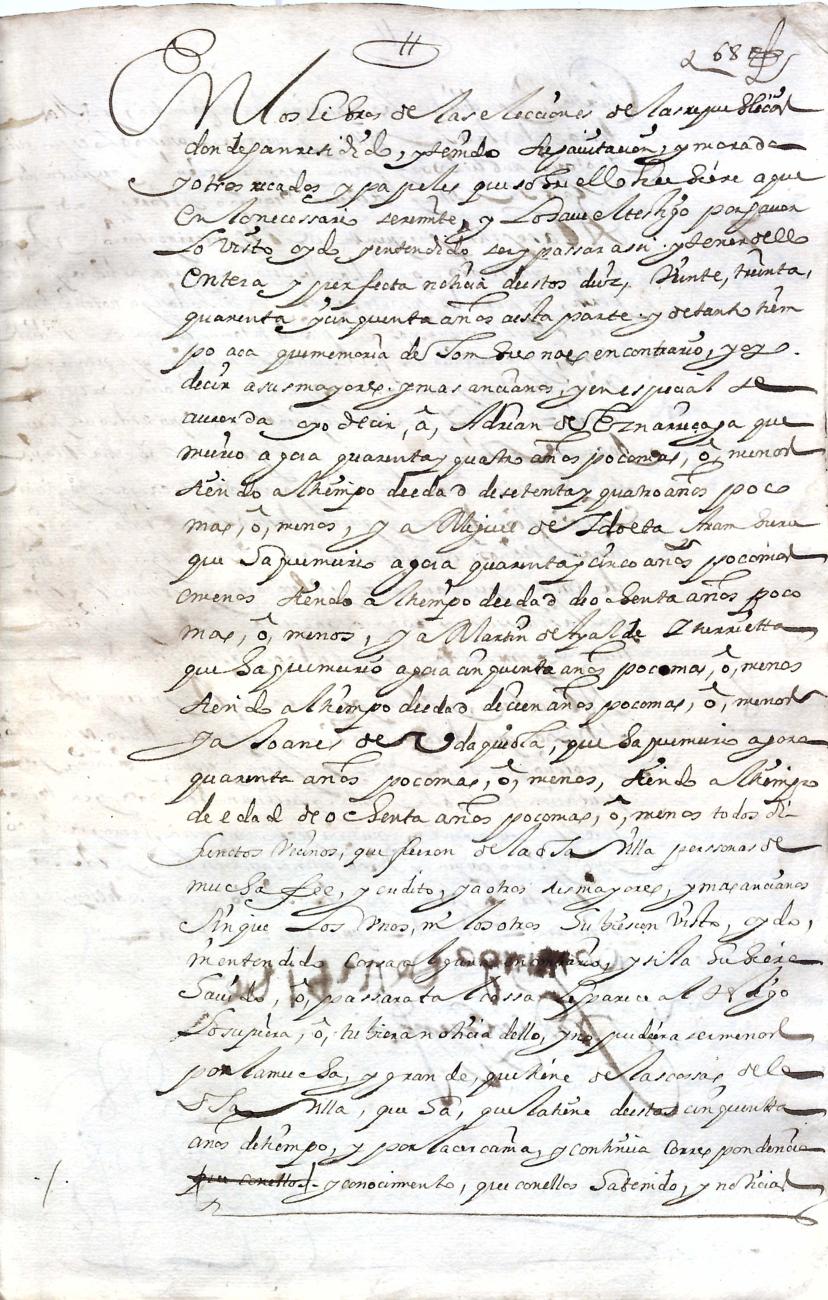 11
68
En los Libros de las elecciones de las republicas
donde han residido, y tenido su havitacion, y morada
y otros recados y papeles que sobre ello hubiere a que
en lo necessario se remite, y lo save el testigo por haver
lo visto oydo y entendido ser y passar assi y tener dello
entera y perfecta noticia de estos diez, Veinte, treinta,
quarenta y cinquenta años a esta parte y de tanto tiem
po aca que memoria de hombres no es en contrario, y oy
decir a sus mayores y mas ancianos, y en especial se
acuerda oyo decir, â, Adrian de que
murio agora quarenta y quatro años poco mas, ô, menos
siendo al tiempo de edad de setenta y quatro años poco
mas, ô, menos, y a Miguel de Idoeta Aramburu
que ha que murio agora quarenta y cinco años poco mas
o menos siendo al tiempo de edad de ochenta años poco
mas, ô, menos, y a Martin de Ayalde Yturrietta
que ha que murio agora cinquenta años poco mas, ô, menos
siendo al tiempo de edad de cien años poco mas, ô, menos
y a Joanes de Udaquiola, que ha que murio agora
quarenta años poco mas, ô, menos, siendo al tiempo
de edad de ochenta años poco mas, ô, menos todos di
functos Vecinos, que fueron de la dha Villa perssonas de
mucha fee, y credito, y a otros sus mayores, y mas ancianos
sin que Los Unos, ni los otros hubiesen Visto, oydo,
ni entendido cossa alguna en contrario, y si la hubiera
havido, ô, passara tal cossa le parece al testigo
Lo supiera, ô, tubiera noticia dello, y no pudiera ser menos
por la mucha, y grande, que tiene de las cossas de la
dha Villa, que ha, que la tiene de estos cinquentta
años de tiempo, y por la cercania, y continua correspondencia
que conellos y conocimiento, que conellos ha tenido, y noticias